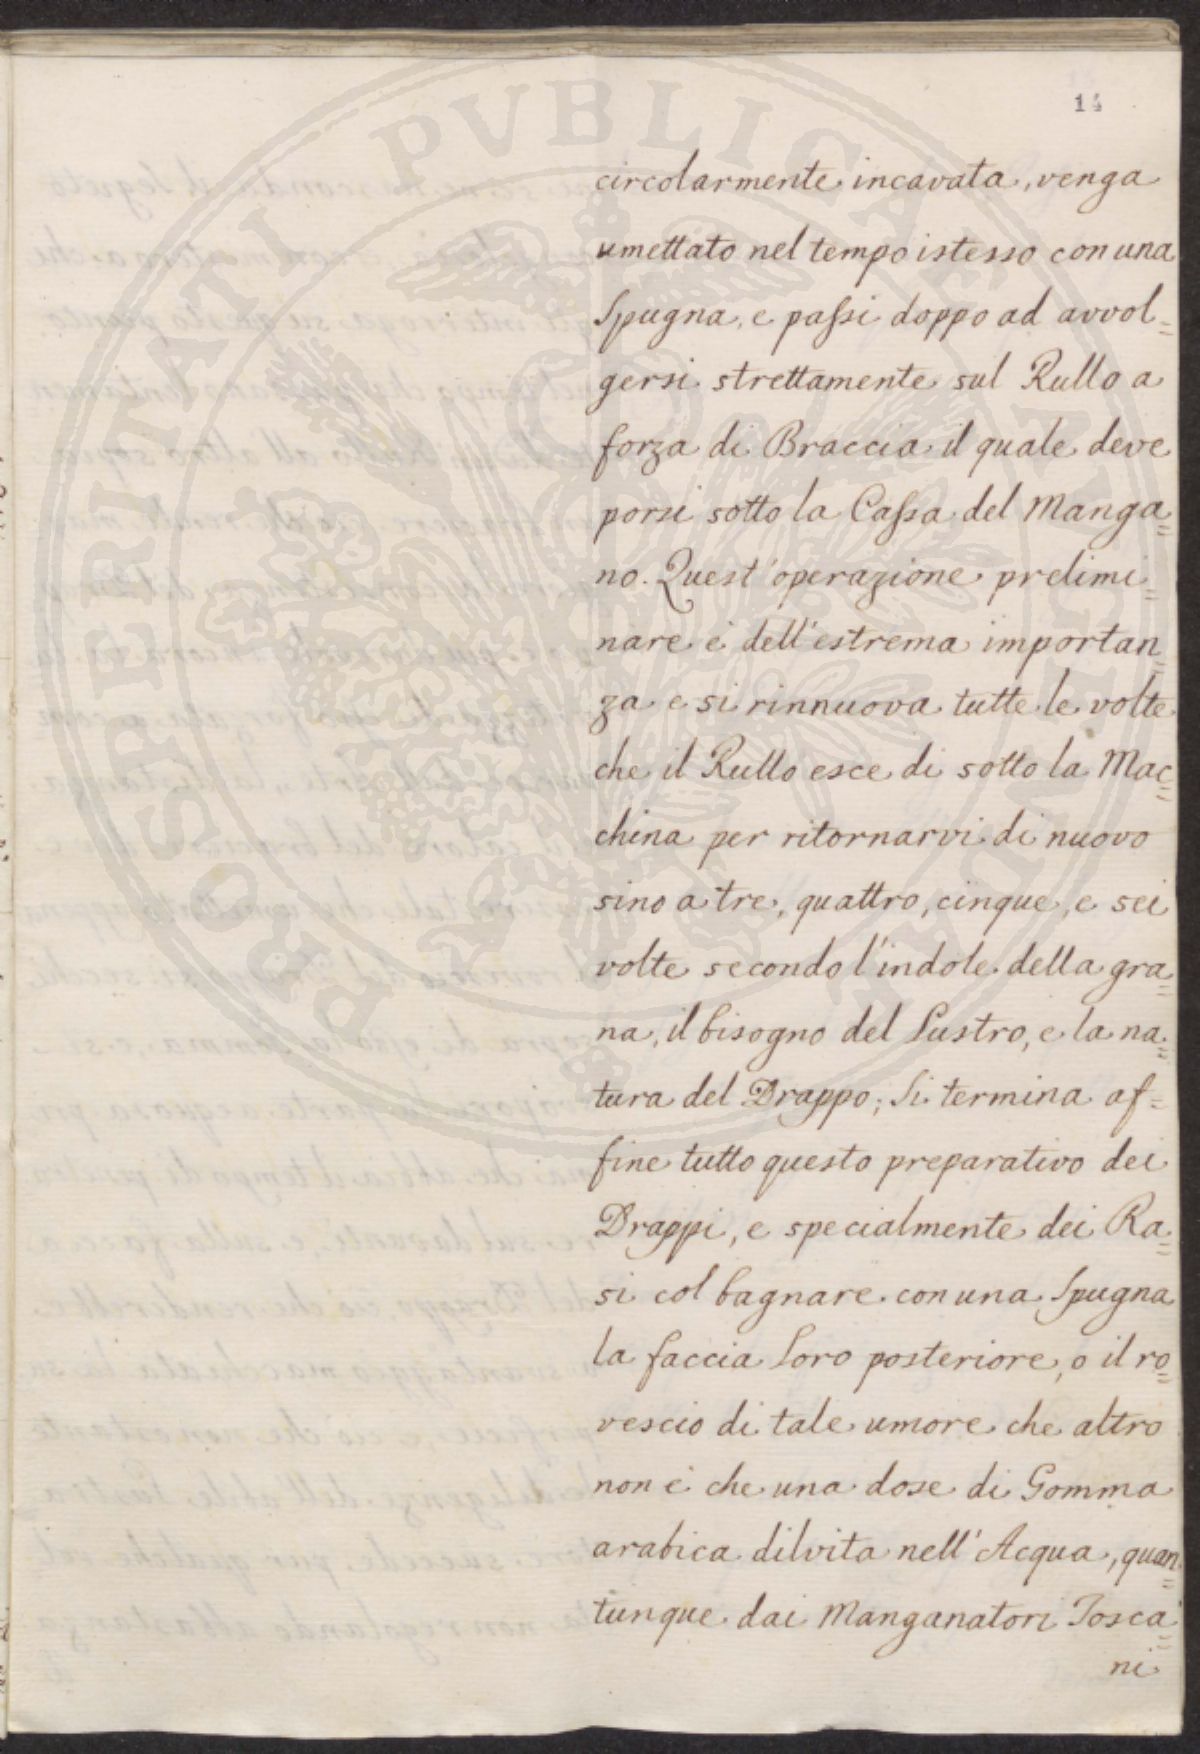 14
circolarmente incavata, venga
umettato nel tempo istesso con una
Spugna, e passi doppo ad avvol=
gersi strettamente sul Rullo a
forza di Braccia il quale deve
porsi sotto la Cassa del Manga=
no. Quest'operazione prelimi=
nare è dell'estrema importan=
za e si rinnuova tutte le volte
che il Rullo esce di sotto la Mac=
china per ritornarvi di nuovo
sino a tre, quattro, cinque, e sei
volte secondo l'indole della gra=
na, il bisogno del Lustro, e la na=
tura del Drappo; Si termina af=
fine tutto questo preparativo dei
Drappi, e specialmente dei Ra=
si col bagnare con una Spugna
la faccia loro posteriore, o il ro=
vescio di tale umore che altro
non è che una dose di Gomma
arabica dilvita nell'Acqua, quan=
tunque dai Manganatori Tosca=
ni
PROSPERITATI PVBLICAE AVGENDAE